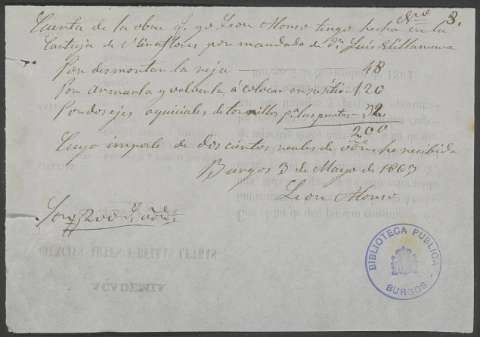 Nro 3.
Cuenta de la obra q. yo Leon Alonso tengo hecha en la
Cartuja de Miraflores por mandado de Dn. Luis Villanueva
Por desmontar la reja 48
por armarla y volverla a colocar en sitio 120
Por dos ejes o quiciales de tornillos pa. las puertas 32
200
Cuyo importe de dos cientos reales de von. he recibido
Burgos 3 de Mayo de 1865
Leon Alonso
Son 200 rs. von.
ACADEMIA
BIBLIOTECA PUBLICA
BURGOS